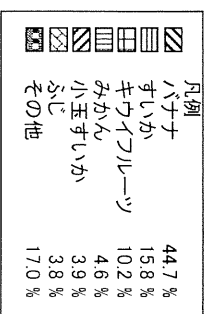 凡例
バナナ 44.7 %
すいか 15.8 %
キウイフルーツ 10.2 %
みかん 4.6 %
小玉すいか 3.9 %
ふじ 3.8 %
その他 17.0 %